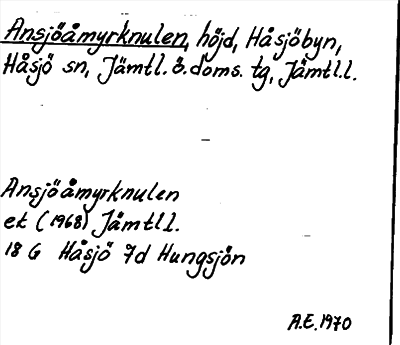 Ansjöåmyrknulen, höjd, Håsjöbyn,
Håsjö sn, Jämtl. ö. doms. tg, Jämtl.l.
Ansjöåmyrknulen
ek (1968) Jämtl l.
18 G Håsjö 7d Hungsjön
A.E. 1970